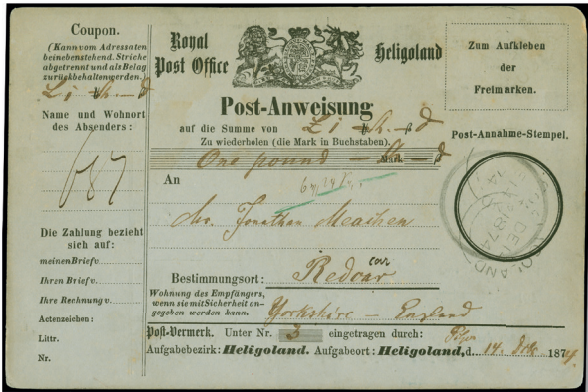 Coupon.
(Kann vom Adressaten
beinebenstehend. Striche
abgetrennt und als Belag
zurückbehalten werden.)
£ 1 - sh. - d
Name und Wohnort
des Absenders:
687
Die Zahlung bezieht
sich auf:
meinen Brief v.
Ihren Brief v.
Ihre Rechnung v.
Actenzeichen:
Littr.
Nr.
Royal Heligoland
Post Office
Post-Anweisung
auf die Summe von £ 1 - sh. - d
Zu wiederholen (die Mark in Buchstaben).
One pound - sh - d
Mark
An
Mr. Jonathan Meachen
Bestimmungsort: Redcar
car
Wohnung des Empfängers,
wenn sie mit Sicherheit an-
gegeben werden kann.
Yorkshire - England
Post-Vermerk. Unter Nr. 3 eingetragen durch:
Aufgabebezirk: Heligoland. Aufgabeort: Heligoland, d. 14. 1874.
Zum Aufkleben
der
Freimarken.
Post-Annahme-Stempel.
HELIGOLAND
DE
1874